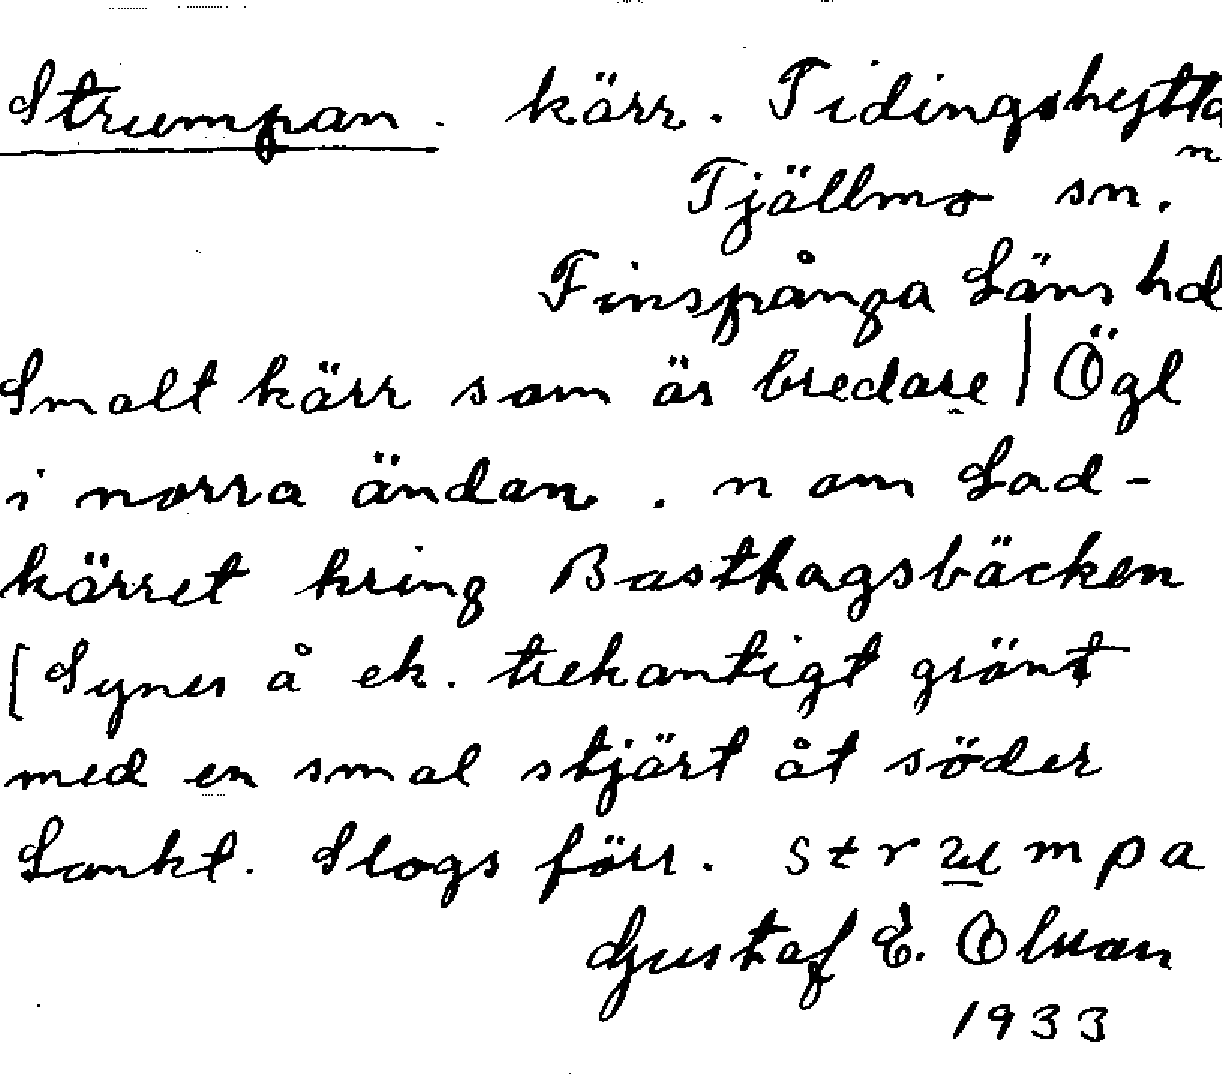 Strumpan. kärr. Tidingshyttan
Tjällmo sn.
Finspånga Läns hd
Smalt kärr som är bredare | Ögl
i norra ändan. n om Lad-
kärret kring Basthagsbäcken
[Synes å ek. trekantigt grönt
med en smal stjärt åt söder
Lankt. Slogs förr. strumpa
Gustaf E. Olson
1933